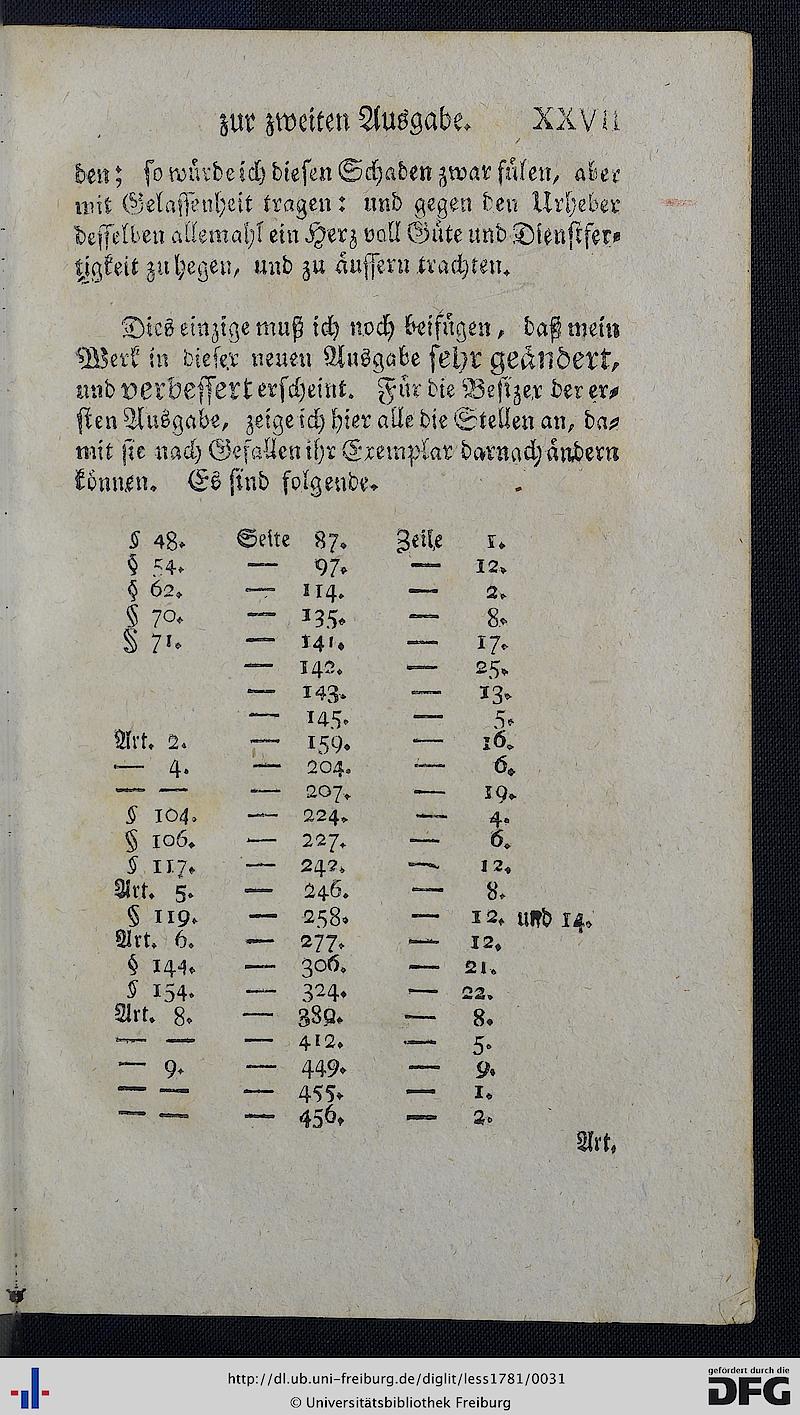 zur zweiten Ausgabe. XXVII
den; so würde ich diesen Schaden zwar fülen, aber
mit Gelassenheit tragen: und gegen den Urheber
desselben allemahl ein Herz voll Güte und Dienstfer⸗
tigkeit zu hegen, und zu äussern trachten.
Dies einzige muß ich noch beifügen, daß mein
Werk in dieser neuen Ausgabe sehr geändert,
und verbessert erscheint. Für die Besizer der er⸗
sten Ausgabe, zeige ich hier alle die Stellen an, da⸗
mit sie nach Gefallen ihr Exemplar darnach ändern
können. Es sind folgende.
§ 48. Seite 87. Zeile 1.
§ 54. — 97. — 12.
§ 62. — 114. — 2.
§ 70. — 135. — 8.
§ 71. — 141. — 17.
— 142. — 25.
— 143. — 13.
— 145. — 5.
Art. 2. — 159. — 16.
— 4. — 204. — 6.
— — — 207. — 19.
§ 104. — 224. — 4.
§ 106. — 227. — 6.
§ 117. — 242. — 12.
Art. 5. — 246. — 8.
§ 119. — 258. — 12. und 14.
Art. 6. — 277. — 12.
§ 144. — 306. — 21.
§ 154. — 324. — 22.
Art. 8. — — 8.
— — — 412. — 5.
— 9. — 449. — 9.
— — — 455. — 1.
— — — 456. — 2.
Art.
http://dl.ub.uni-freiburg.de/diglit/less1781/0031
© Universitätsbibliothek Freiburg
gefördert durch die
DFG